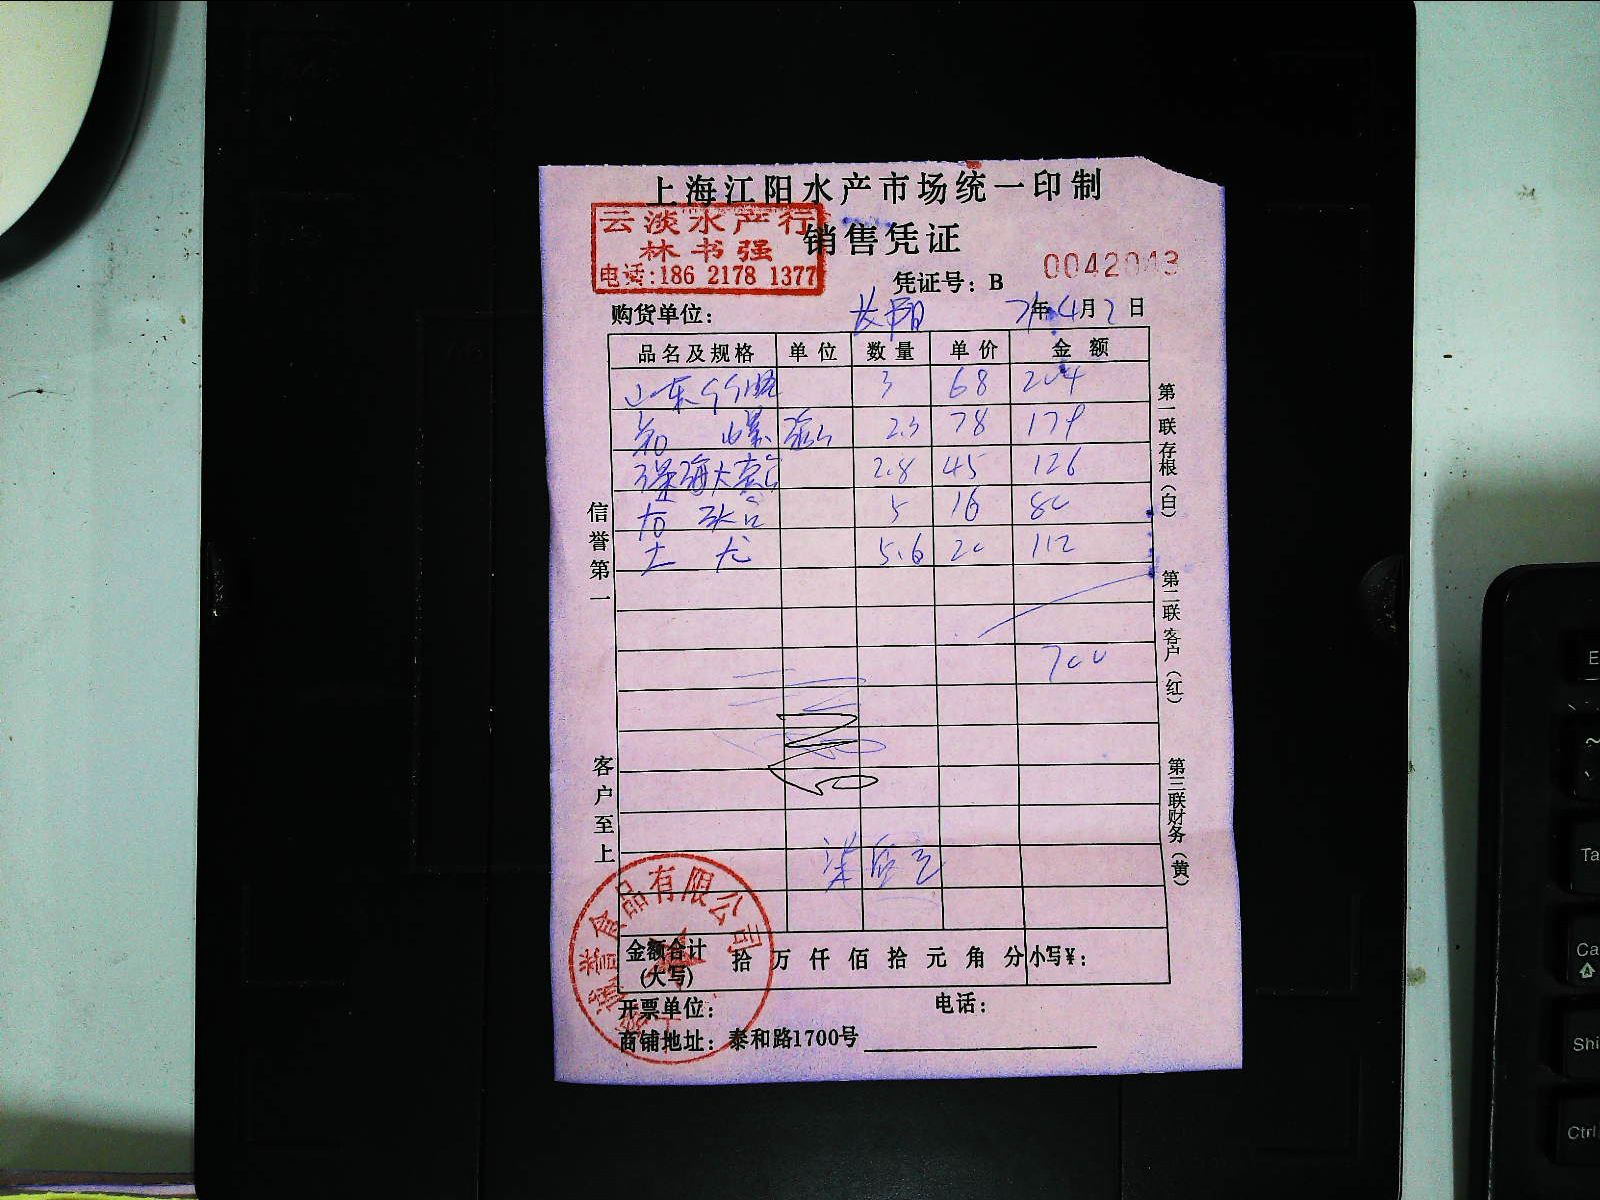 上海江阳水产市场统一印制
云淡水产行
林书强
电话:186 2178 1377
销售凭证
凭证号：B 0042043
购货单位： 长阳 年 4月2日
品名及规格 单位 数量 单价 金额
山东 3 68 204
螺 2.3 78 179
深海大 2.8 45 126
5 16 80
土龙 5.6 20 112
700
信誉第一
客户至上
第一联存根（白）
第二联客户（红）
第三联财务（黄）
食品有限公司
金额合计
(大写) 拾万仟佰拾元角分 小写¥：
开票单位： 电话：
商铺地址：泰和路1700号